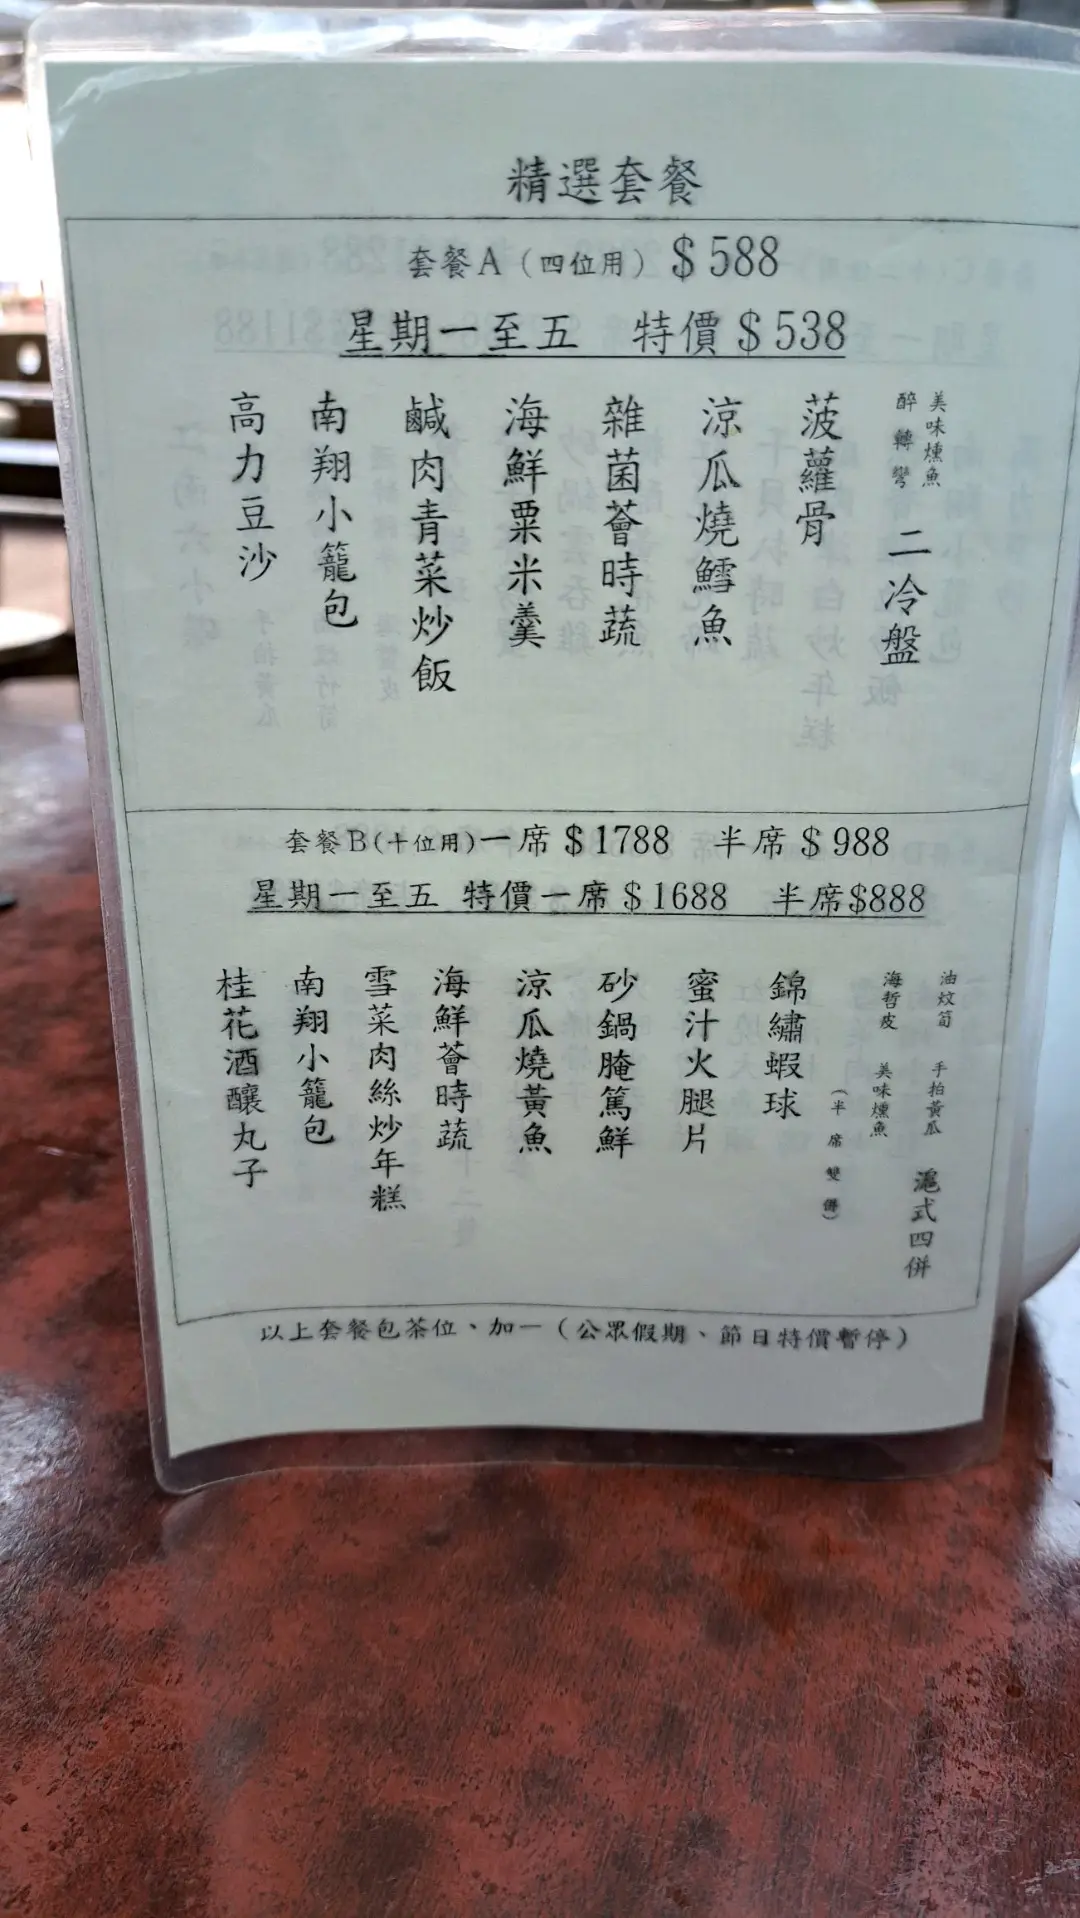 精選套餐
套餐A（四位用）$588
星期一至五 特價$538
美味燻魚
醉轉彎
二冷盤
菠蘿骨
涼瓜燒鱈魚
雜菌薈時蔬
海鮮粟米羹
鹹肉青菜炒飯
南翔小籠包
高力豆沙
套餐B(十位用)一席$1788 半席$988
星期一至五 特價一席$1688 半席$888
油炆筍 手拍黃瓜
海哲皮 美味燻魚
滬式四併
(半席雙併)
錦繡蝦球
蜜汁火腿片
砂鍋腌篤鮮
涼瓜燒黃魚
海鮮薈時蔬
雪菜肉絲炒年糕
南翔小籠包
桂花酒釀丸子
以上套餐包茶位、加一（公眾假期、節日特價暫停）